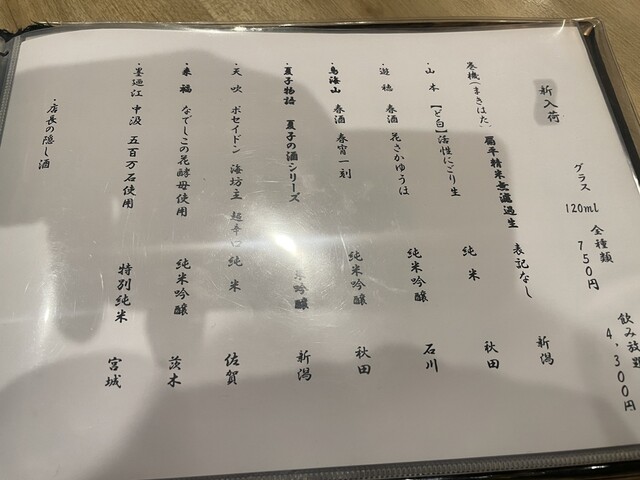 飲み放題 4,300円
グラス 120ml 全種類 750円
新入荷
巻機(まきはた) 扁平精米無濾過生 表記なし 新潟
・山本 【ど白】活性にごり生 純米 秋田
・遊穂 春酒 花さかゆうほ 純米吟醸 石川
・鳥海山 春酒 春宵一刻 純米吟醸 秋田
・夏子物語 夏子の酒シリーズ 米吟醸 新潟
・天吹 ポセイドン 海坊主 超辛口 純米 佐賀
・来福 なでしこの花酵母使用 純米吟醸 茨木
・墨廼江 中汲 五百万石使用 特別純米 宮城
・店長の隠し酒